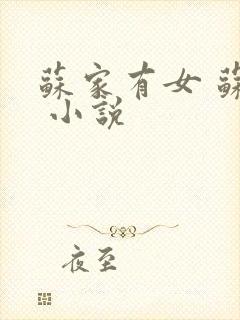 蘇家有女 蘇
小說
夜至